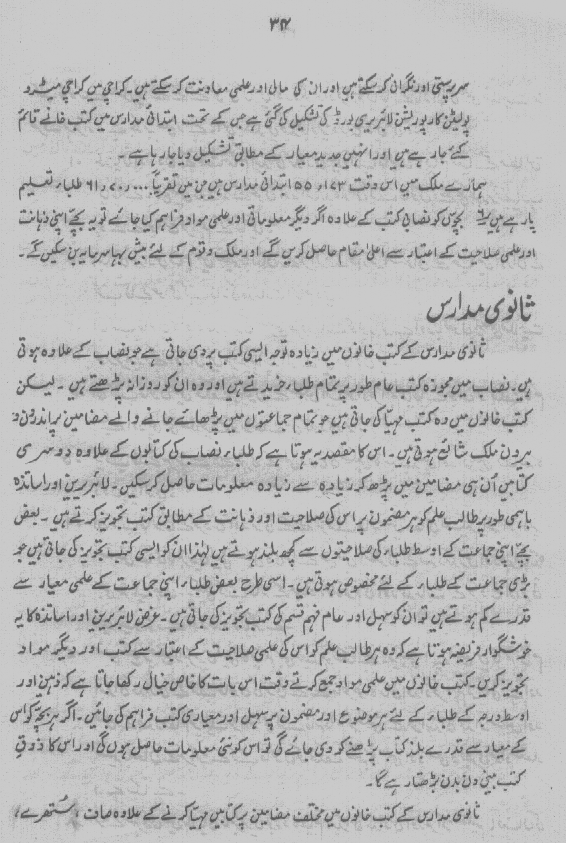 ۳۴
سرپرستی اور نگرانی کرسکتے ہیں اور ان کی مالی اور علمی معاونت کرسکتے ہیں۔ کراچی میں کراچی میٹرو
پولیٹن کارپوریشن لائبریری بورڈ کی تشکیل کی گئی ہے جس کے تحت ابتدائی مدارس میں کتب خانے قائم
کئے جارہے ہیں اور انہیں جدید معیار کے مطابق تشکیل دیا جارہا ہے۔
ہمارے ملک میں اس وقت ۵۵،۱۷۳ ابتدائی مدارس ہیں جن میں تقریباً طلباء تعلیم
پارہے ہیں بچوں کو نصابی کتب کے علاوہ اگر دیگر معلوماتی اور علمی مواد فراہم کیا جائے تو یہ بچے اپنی ذہانت
اور علمی صلاحیت کے اعتبار سے اعلیٰ مقام حاصل کریں گے اور ملک و قوم کے لئے بیش بہا سرمایہ بن سکیں گے۔
ثانوی مدارس
ثانوی مدارس کے کتب خانوں میں زیادہ توجہ ایسی کتب پر دی جاتی ہے جو نصاب کے علاوہ ہوتی
ہیں۔ نصاب میں مجوزہ کتب عام طور پر تمام طلباء خریدتے ہیں اور وہ ان کو روزانہ پڑھتے ہیں۔ لیکن
کتب خانوں میں وہ کتب مہیا کی جاتی ہیں جو تمام جماعتوں میں پڑھائے جانے والے مضامین پر اندرون و
بیرون ملک شائع ہوتی ہیں۔ اس کا مقصد یہ ہوتا ہے کہ طلباء نصاب کی کتابوں کے علاوہ دوسری
کتابیں اُن ہی مضامین میں پڑھ کر زیادہ سے زیادہ معلومات حاصل کرسکیں۔ لائبریرین اور اساتذہ
باہمی طور پر طالب علم کو ہر مضمون پر اس کی صلاحیت اور ذہانت کے مطابق کتب تجویز کرتے ہیں۔ بعض
بچے اپنی جماعت کے اوسط طلباء کی صلاحیتوں سے کچھ بلند ہوتے ہیں لہٰذا ان کو ایسی کتب تجویز کی جاتی ہیں جو
بڑی جماعت کے طلباء کے لئے مخصوص ہوتی ہیں۔ اسی طرح بعض طلباء اپنی جماعت کے علمی معیار سے
قدرے کم ہوتے ہیں تو ان کو سہل اور عام فہم قسم کی کتب تجویز کی جاتی ہیں۔ غرض لائبریرین اور اساتذہ کا یہ
خوشگوار فریضہ ہوتا ہے کہ وہ ہر طالب علم کو اس کی علمی صلاحیت کے اعتبار سے کتب اور دیگر مواد
تجویز کریں۔ کتب خانوں میں علمی مواد جمع کرتے وقت اس بات کا خاص خیال رکھا جاتا ہے کہ ذہین اور
اوسط درجہ کے طلباء کے لئے ہر موضوع اور مضمون پر سہل اور معیاری کتب فراہم کی جائیں۔ اگر ہر بچہ کو اس
کے معیار سے قدرے بلند کتاب پڑھنے کو دی جائے گی تو اس کو نئی معلومات حاصل ہوں گی اور اس کا ذوق
کتب بینی دن بدن بڑھتا رہے گا۔
ثانوی مدارس کے کتب خانوں میں مختلف مضامین پر کتابیں مہیا کرنے کے علاوہ صاف، سُتھرے،